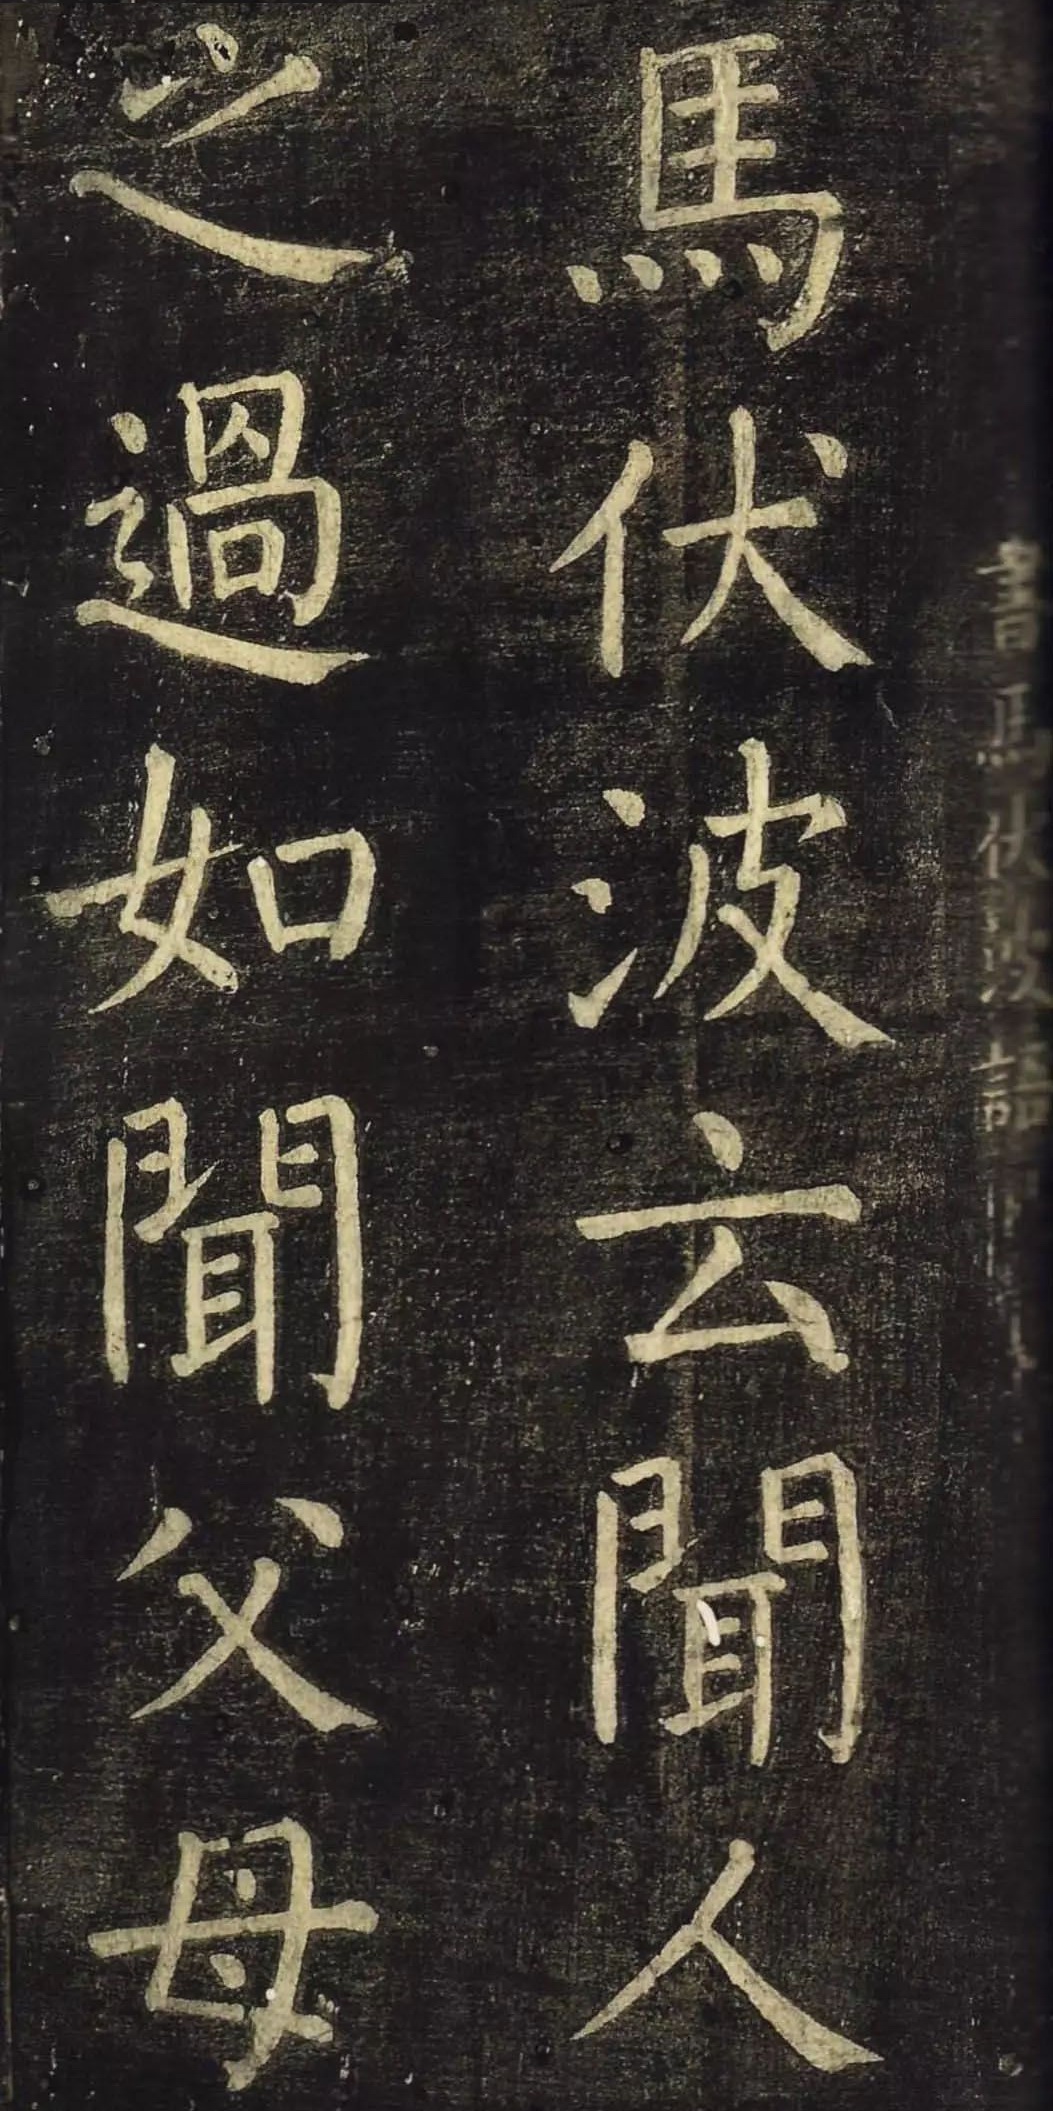 書馬伏波語
馬伏波云聞人
之過如聞父母